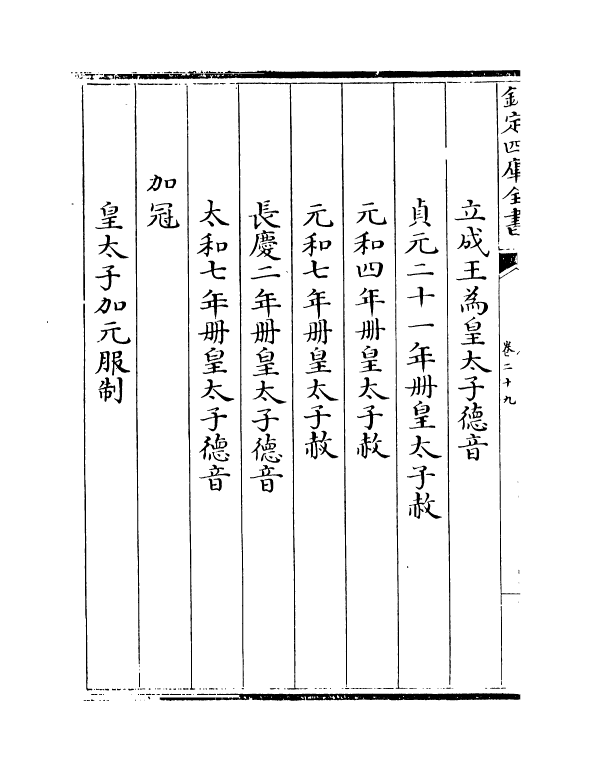 欽定四庫全書
卷二十九
立成王為皇太子德音
貞元二十一年冊皇太子赦
元和四年冊皇太子赦
元和七年冊皇太子赦
長慶二年冊皇太子德音
太和七年冊皇太子德音
加冠
皇太子加元服制